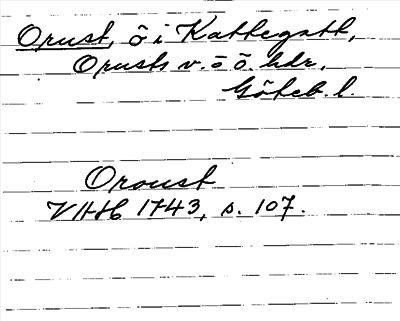 Orust, ö i Kattegatt,
Orusts v. o ö. hdr,
Göteb. l.
Oroust
VHH 1743, s. 107.